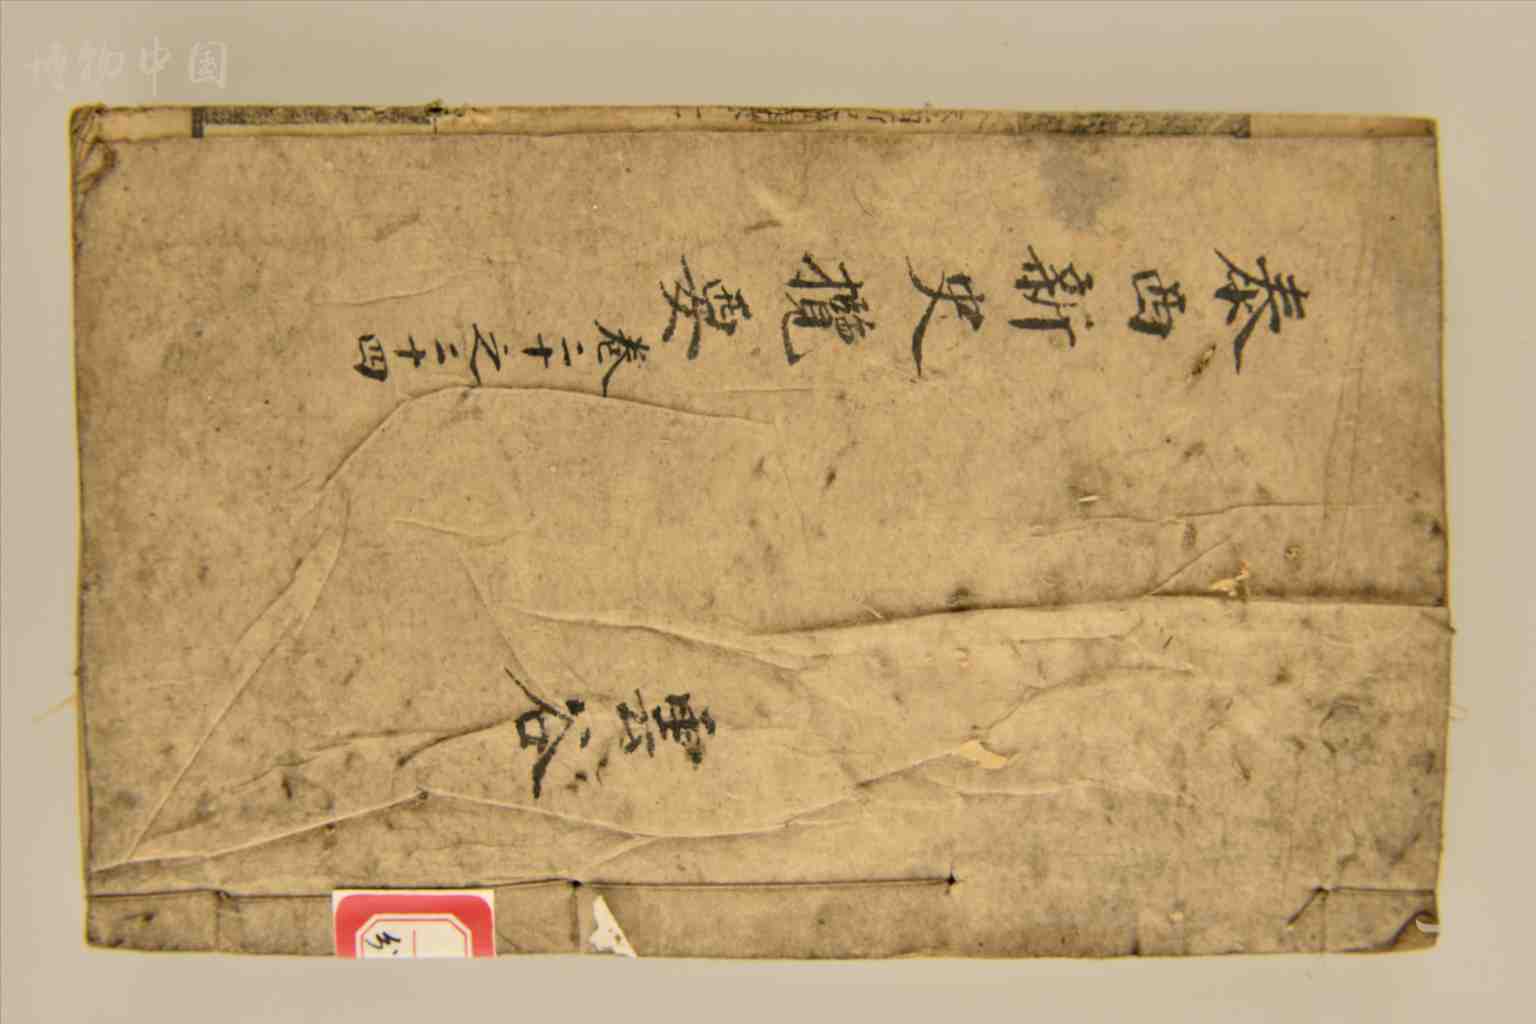 博物中国
泰西新史攬要
卷二十之二十四